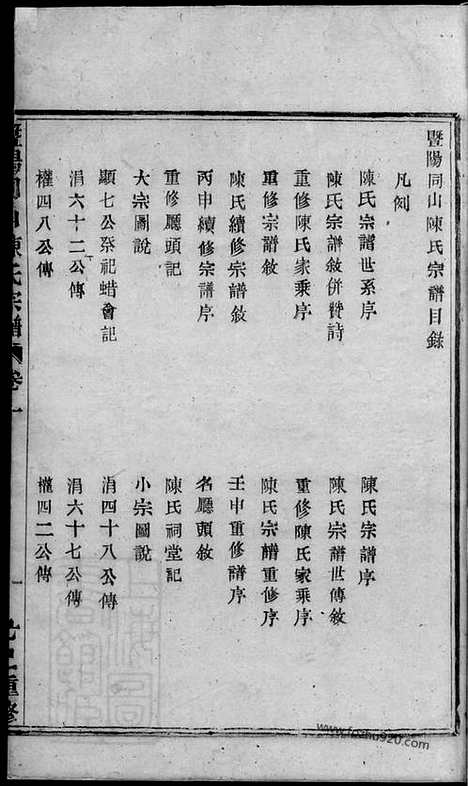 暨陽同山陳氏宗譜目錄
凡例
陳氏宗譜世系序
陳氏宗譜序
陳氏宗譜敘併贊詩
陳氏宗譜世傳敘
重修陳氏家乘序
重修陳氏家乘序
重修宗譜敘
陳氏宗譜重修序
陳氏續修宗譜敘
壬申重修譜序
丙申續修宗譜序
名廳頭敘
重修廳頭記
陳氏祠堂記
大宗圖說
小宗圖說
顯七公祭祀蜡會記
涓四十八公傳
涓六十二公傳
涓六十七公傳
權四八公傳
權四二公傳
暨陽同山陳氏宗譜 卷一
一
重修
www.fozhu920.com